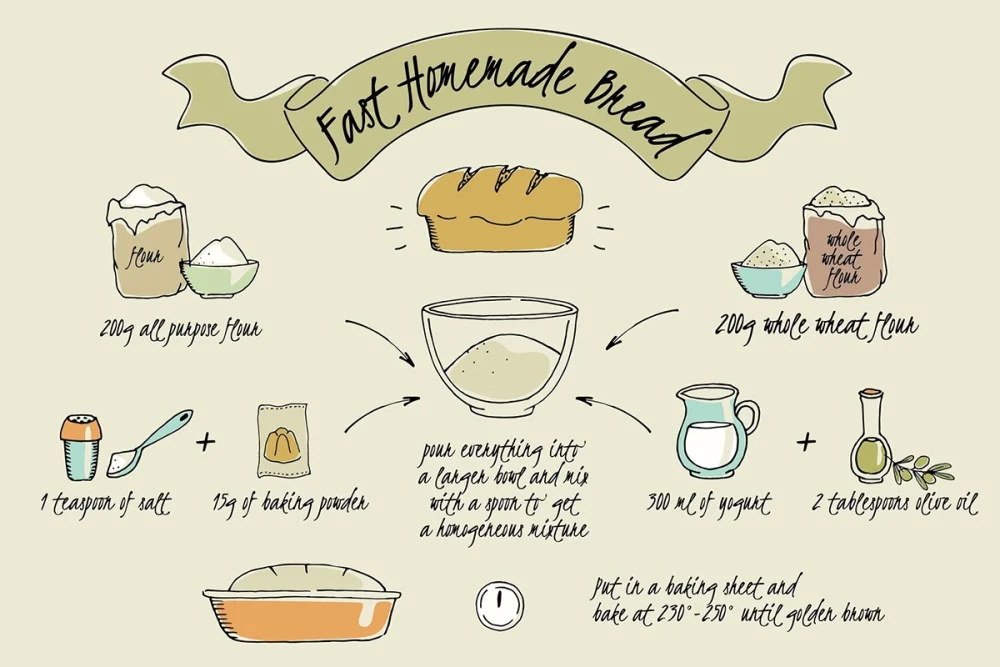 Fast Homemade Bread
flour
whole
wheat
flour
200g all purpose flour
200g whole wheat flour
1 teaspoon of salt
+
15g of baking powder
pour everything into
a larger bowl and mix
with a spoon to get
a homogeneous mixture
300 ml of yogurt
+
2 tablespoons olive oil
Put in a baking sheet and
bake at 230°-250° until golden brown